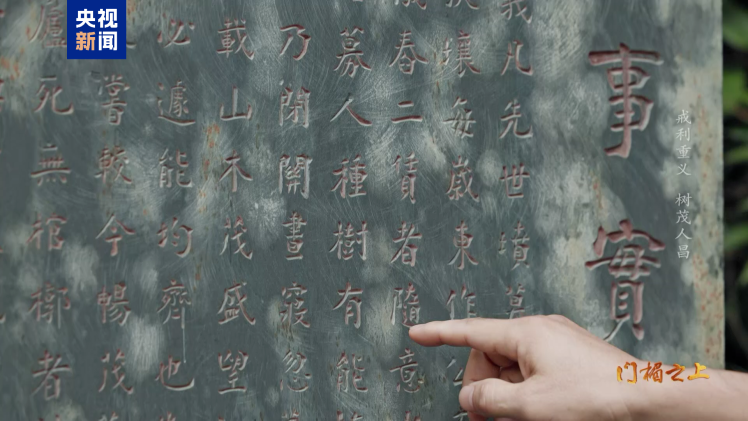 央视
新闻
事實
戒利重义 树茂人昌
義凡先世墳墓
壤每歲東作公
春二賃者隨意
募人種樹有能
乃閉關晝寢忽
載山不茂盛望
必遽能均齊也
嘗較今暢茂
廬死無棺槨者
门楣之上